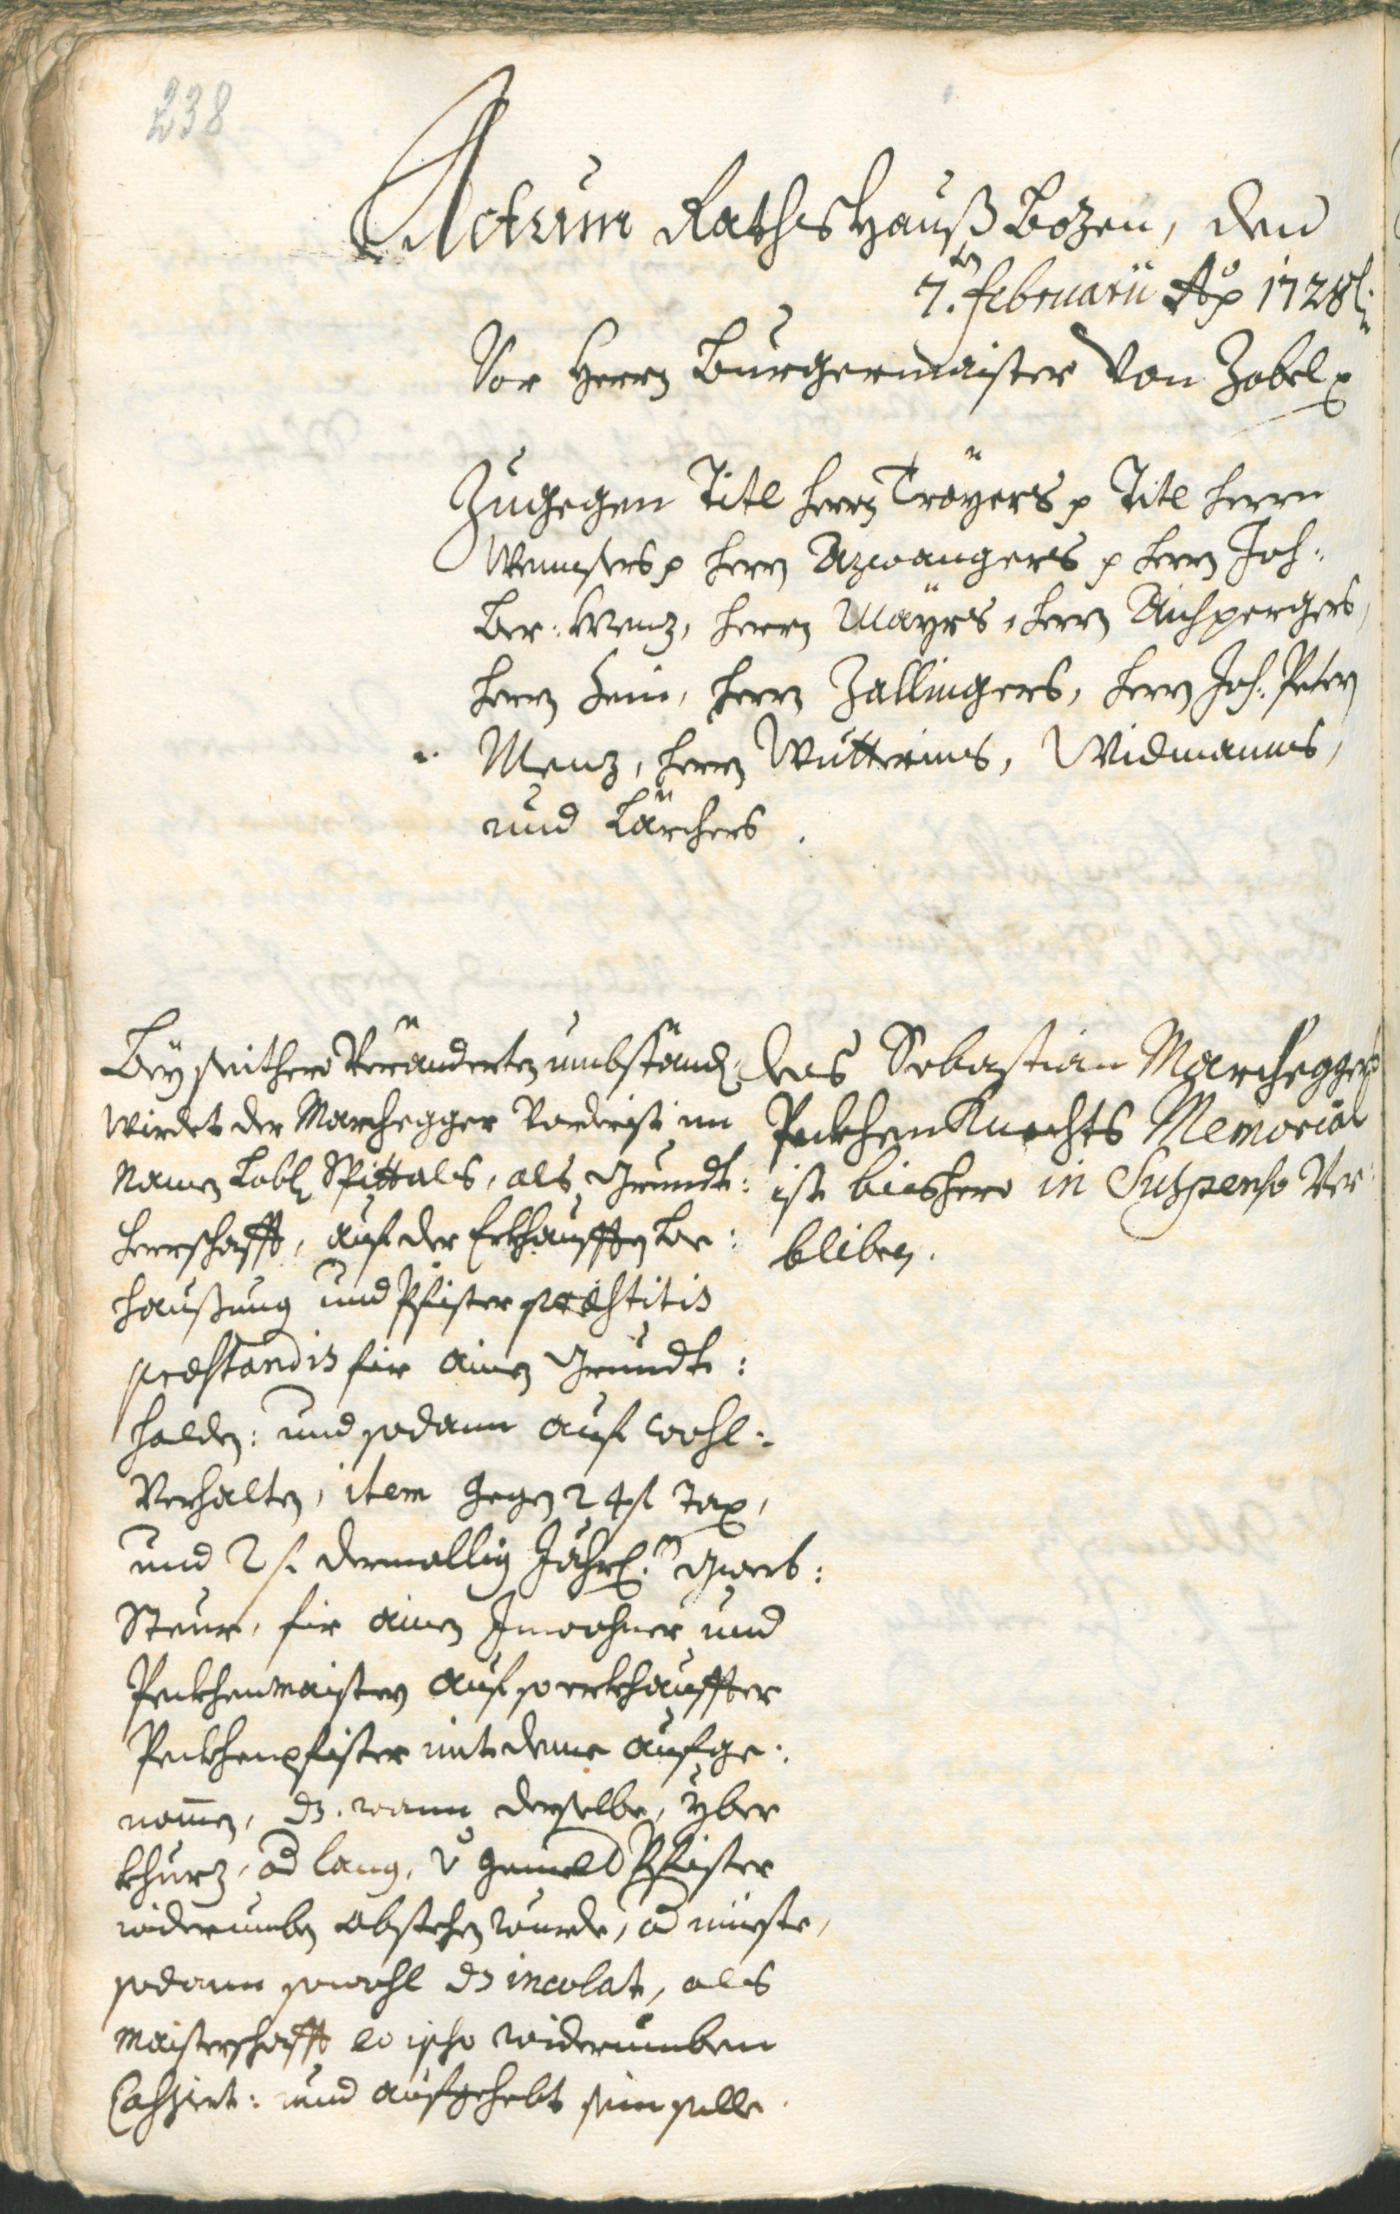 238
Actum Rathshauß Bozen, den
7.ten Februarii Ao 1728
Vor Herrn Burgermaister Von Zobel p
Zugegen Titl herrn Troyers p Titl herrn
Wennsers p herrn Azwangers p herrn Joh:
Ber: Menz, herrn Mäyrs, herrn Aichpergers,
herrn Hein, herrn Zallingers, herrn Joh: Petern
Menz, herrn Wütterins, Widmanns,
und Lärchers.
Bey seithero Verändertn umbständ
Wirdet der Marchegger Vorderist im
Namen Lobl Spittals, als Grundt:
herrschafft, auf der Erkhaufften Be:
haußung und Pfister praestitis
praestandis für ainen Grundt:
holden: und sodann auf wohl:
Verhalten, item gegen 24 fl Tax,
und 2 fl. dermallig Jährl: Gwerb:
Steur, für ainen Innwohner und
Peckhenmaistern auf so erkhauffter
Peckhenpfister mit deme aufge:
nomen, dz. wann derselbe, yber
khurz, od lang, v gemelt Pfister
widerumben abstehen wurde, od mieste,
sodann sowohl dz incolat, als
Maisterschafft eo ipso widerumben
Cassiert: und aufgehebt sein solle.
Das Sebastian Marcheggers
PeckhenKnechts Memorial
ist bishero in Suspenso Ver:
bliben.